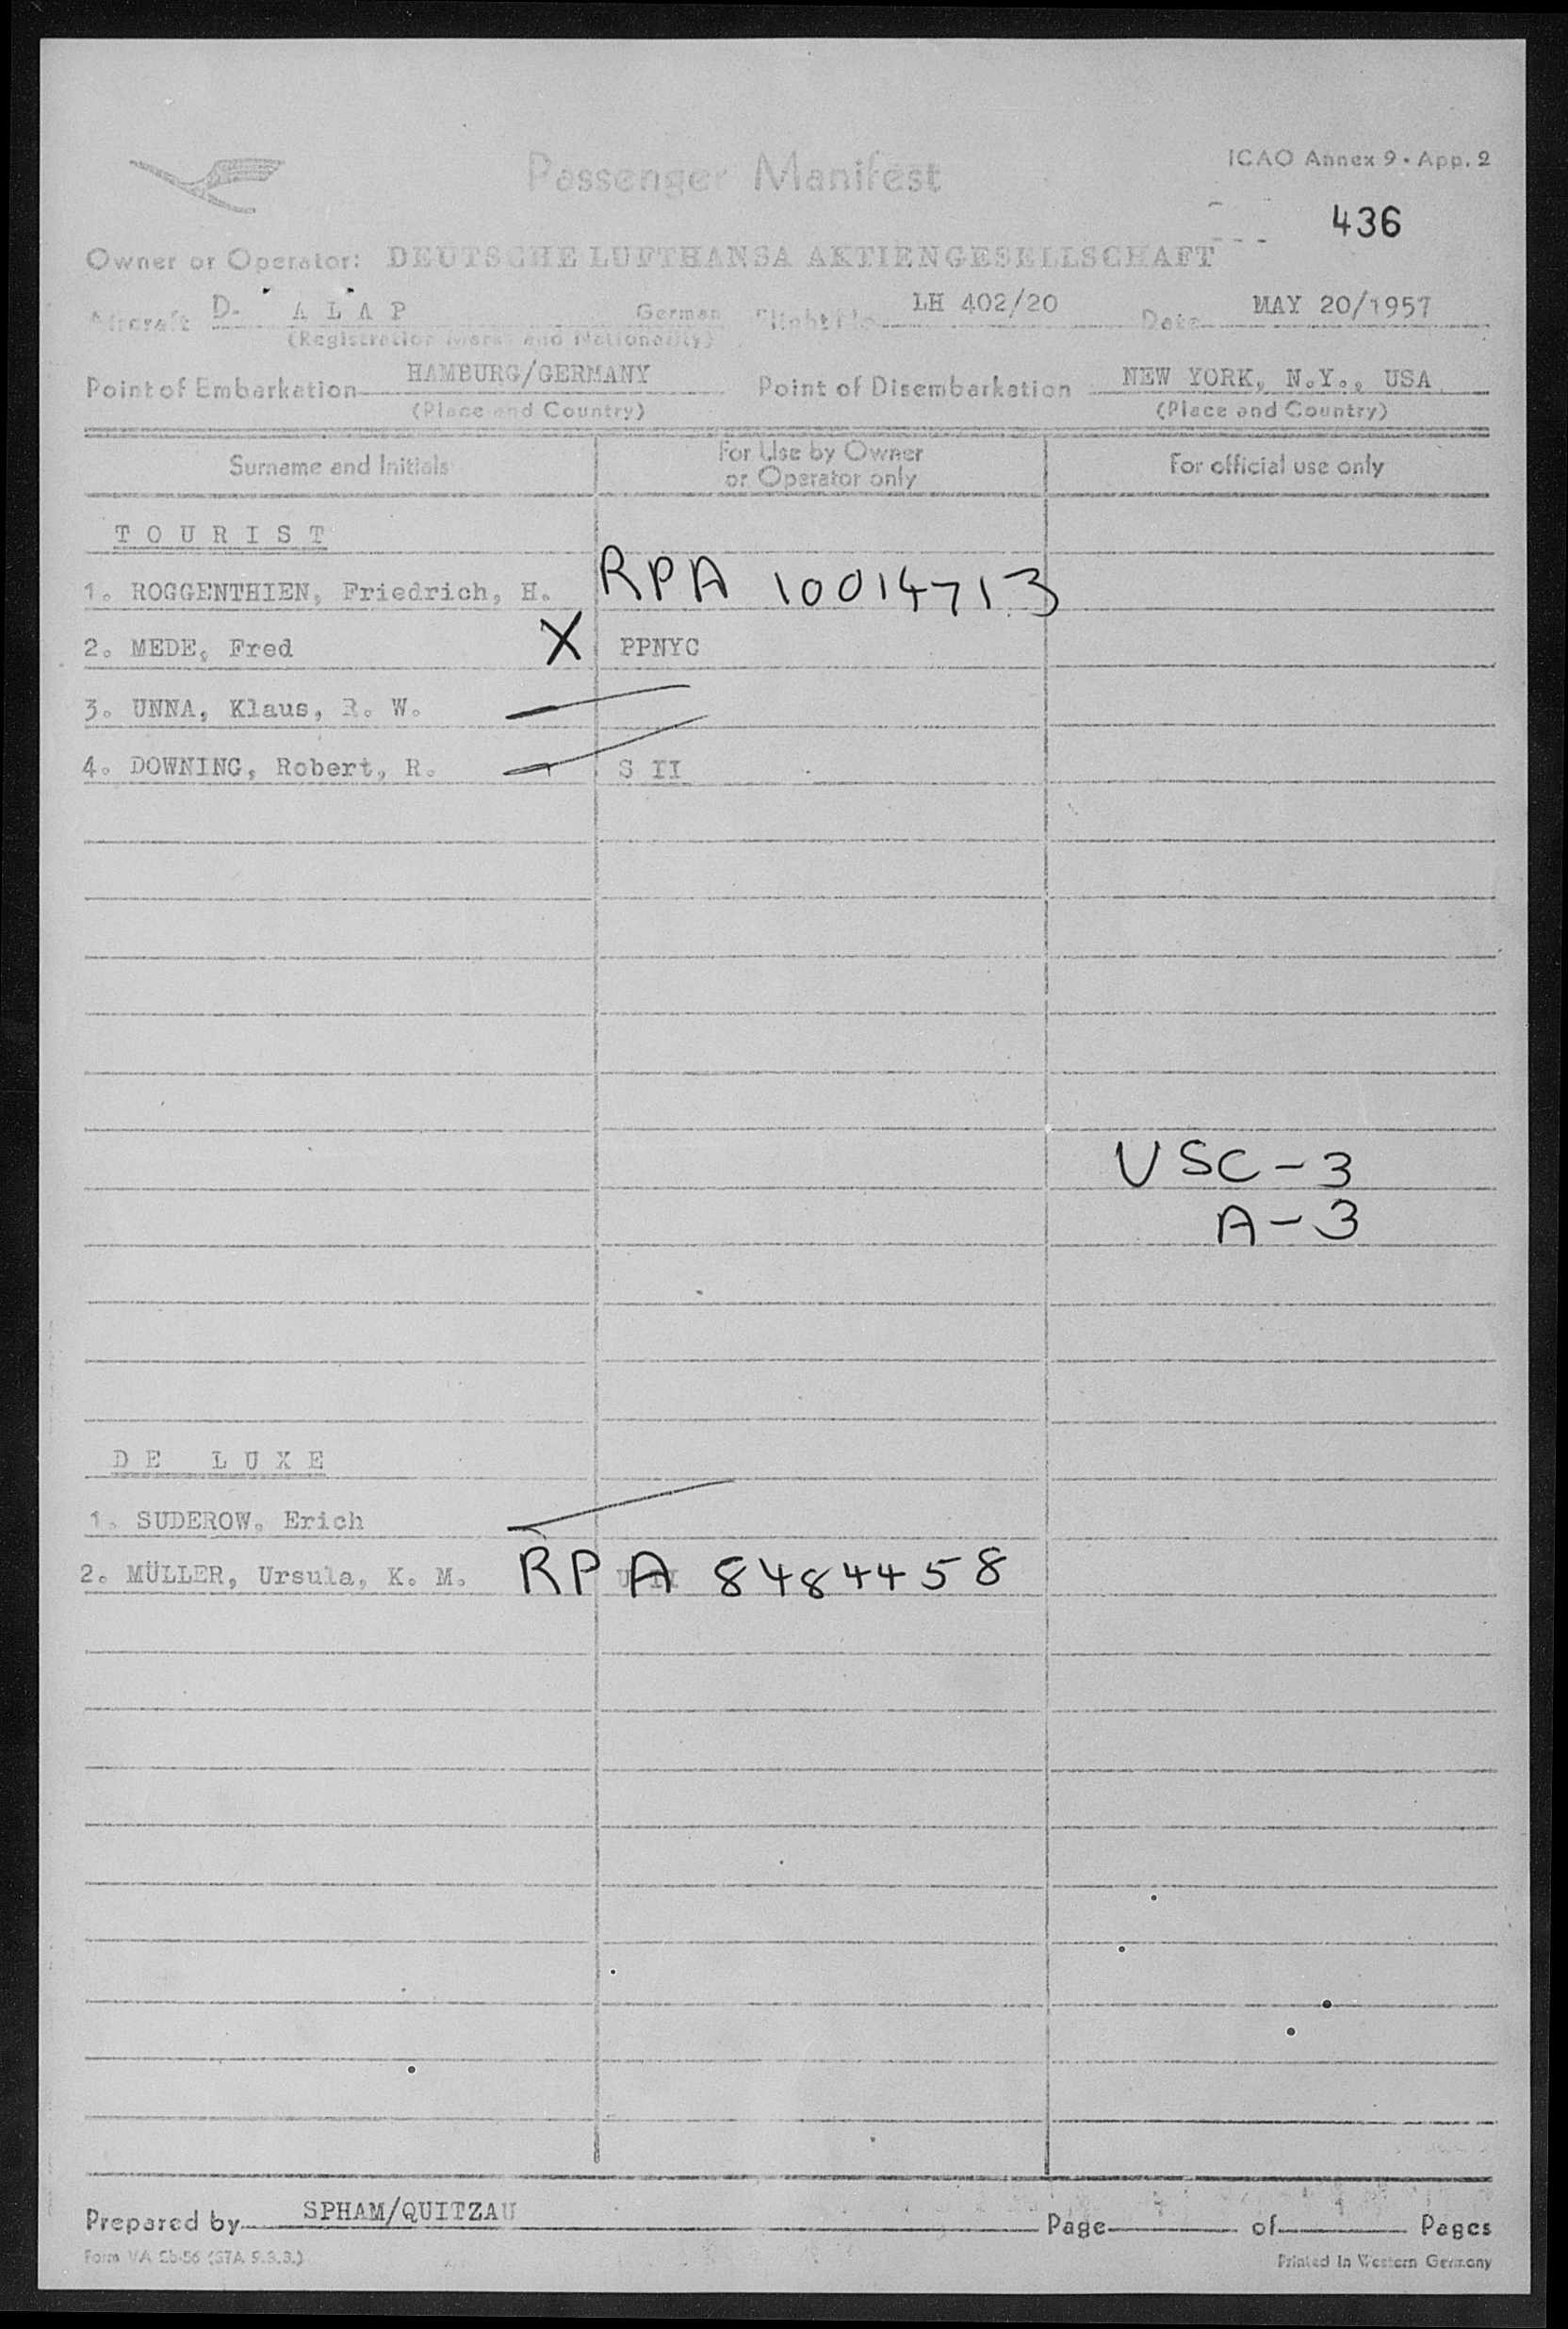 Passenger Manifest
ICAO Annex 9 • App. 2
436
Owner or Operator: DEUTSCHE LUFTHANSA AKTIENGESELLSCHAFT
Aircraft D- A L A P German Flight No LH 402/20 Date MAY 20/1957
(Registration Marks and Nationality)
Point of Embarkation HAMBURG/GERMANY Point of Disembarkation NEW YORK, N.Y., USA
(Place and Country) (Place and Country)
Surname and Initials For Use by Owner or Operator only For official use only
T O U R I S T
1. ROGGENTHIEN, Friedrich, H. RPA 10014713
2. MEDE, Fred X PPNYC
3. UNNA, Klaus, R. W.
4. DOWNING, Robert, R. S II
USC-3
A-3
D E L U X E
1. SUDEROW, Erich
2. MÜLLER, Ursula, K. M. RPA 8484458
Prepared by SPHAM/QUITZAU Page of 1 Pages
Form VA Sb-56 (STA 9.3.3.) Printed in Western Germany